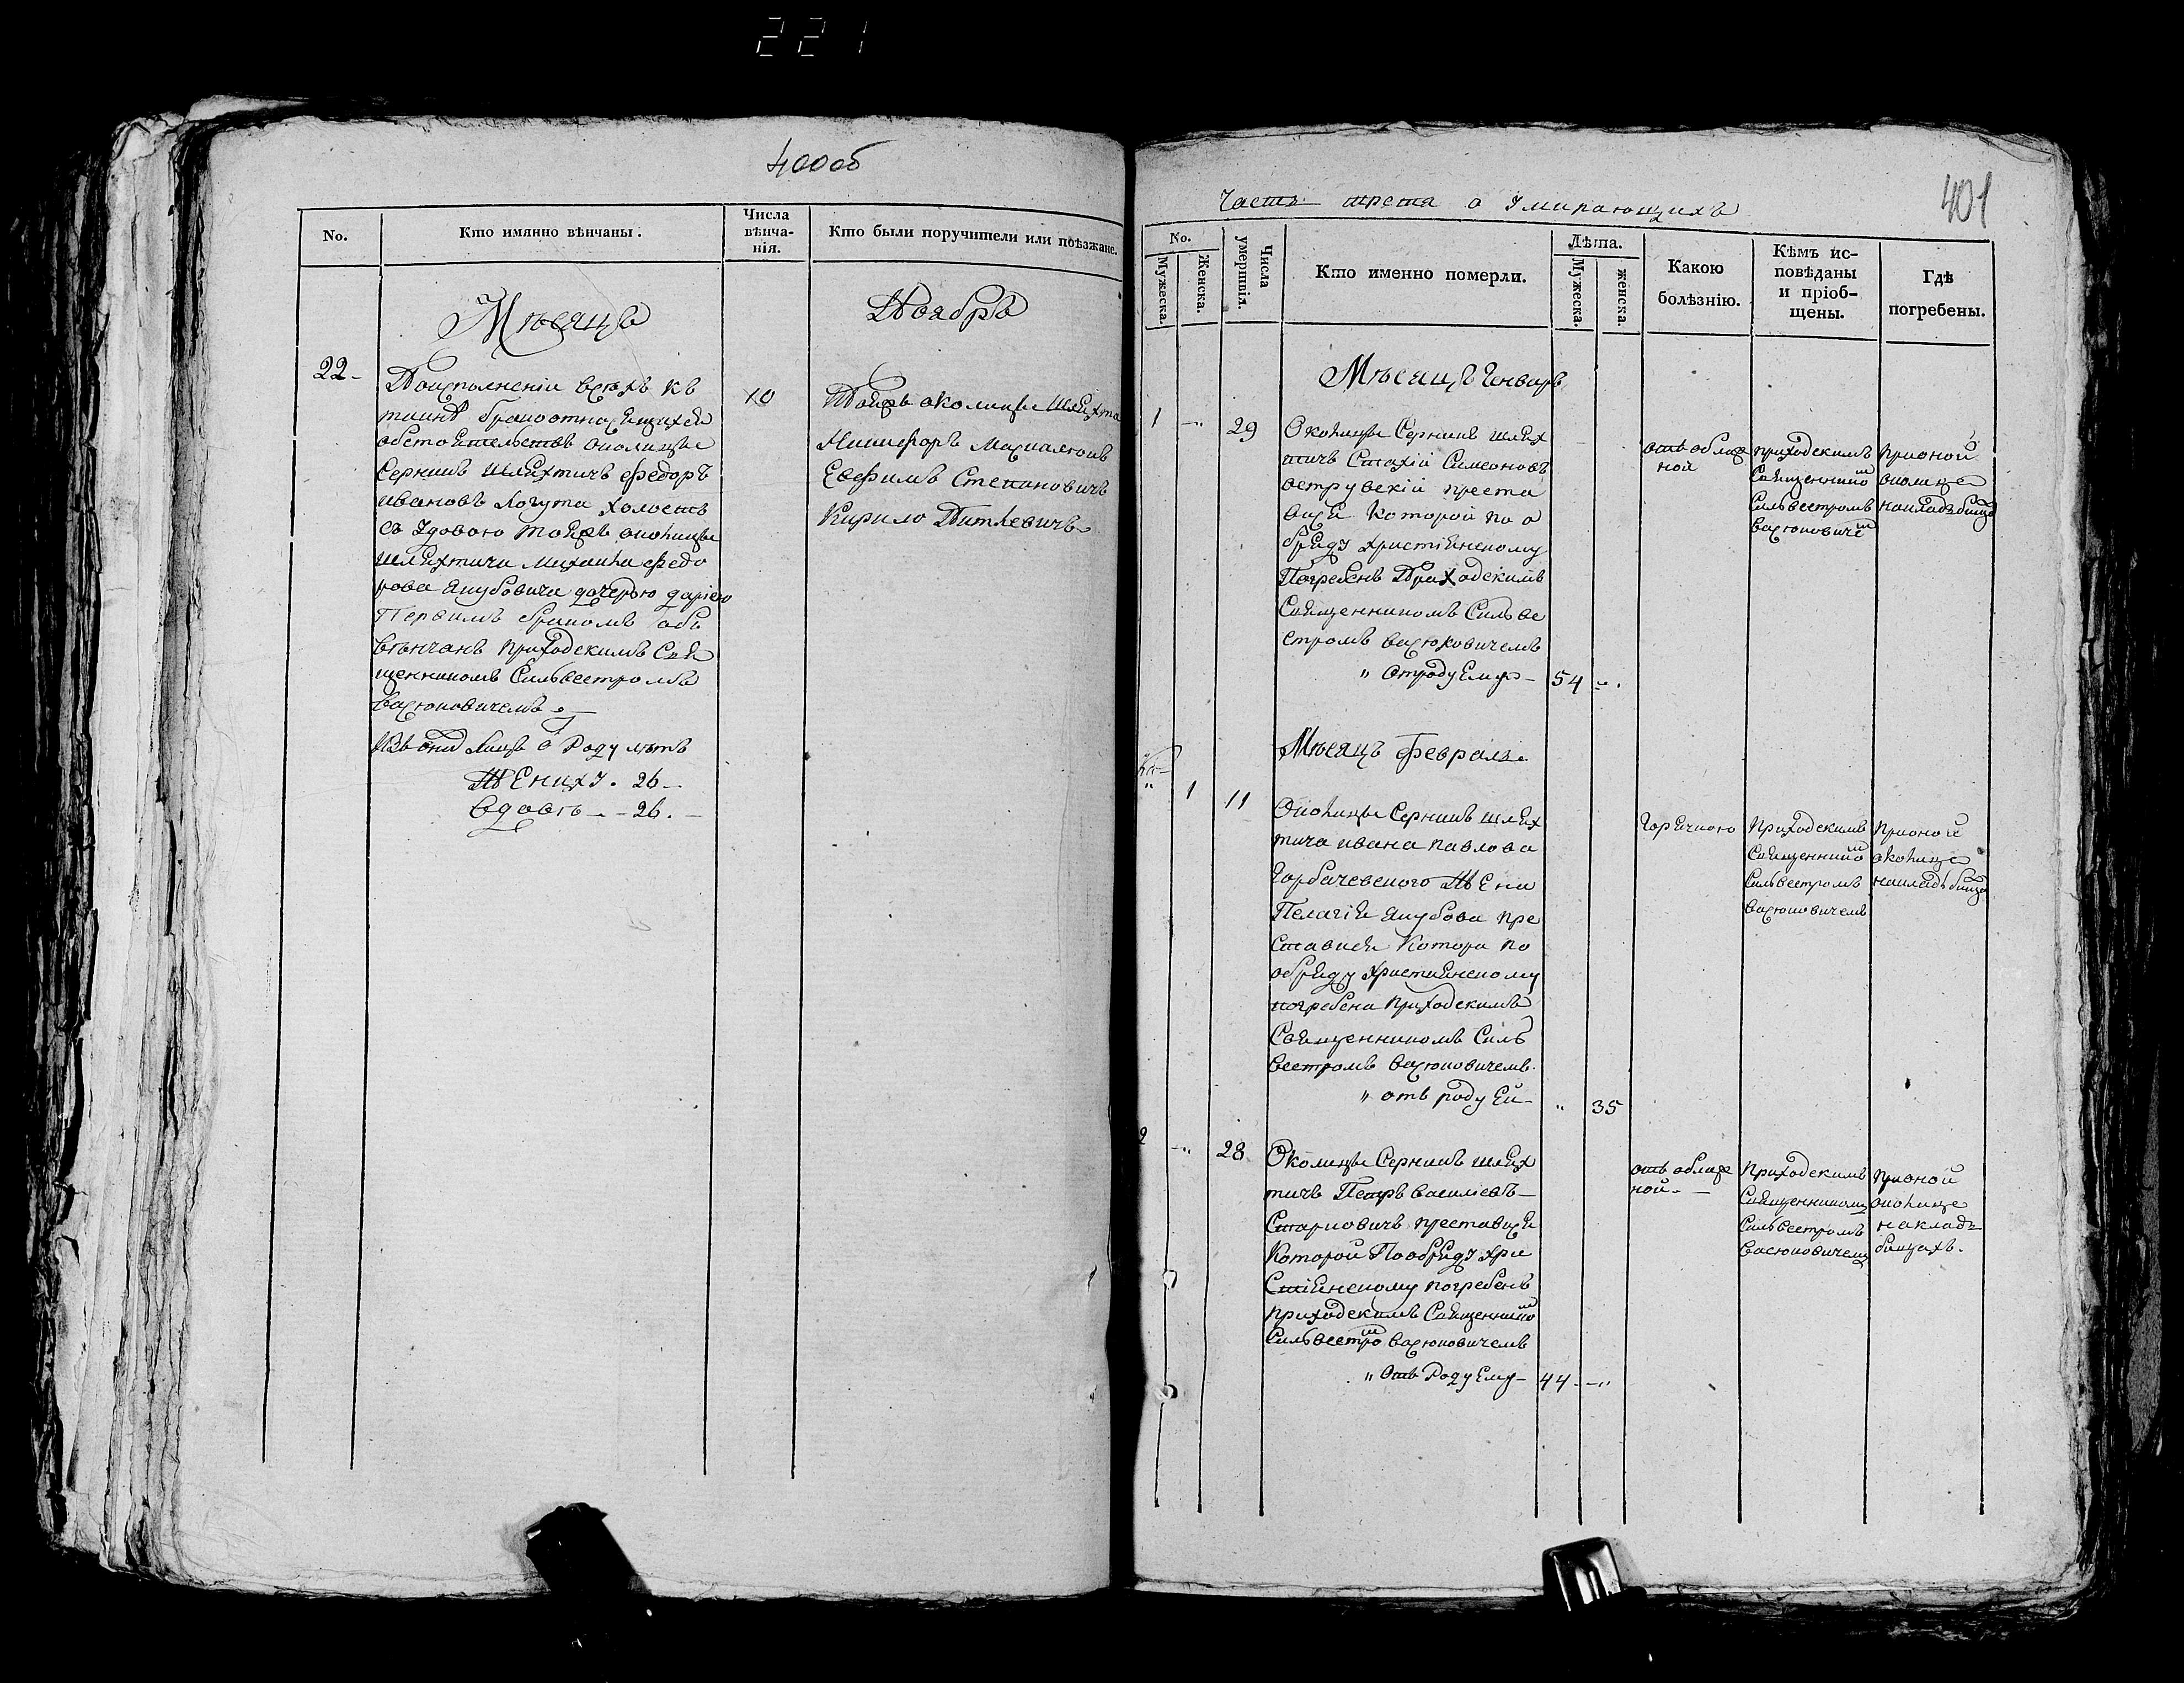 221
400об
No.
Кто имянно вѣнчаны.
Числа
вѣнча-
нія.
Кто были поручители или поѣзжане.
Мѣсяцъ
Ноябръ
22-
По исполненіи всѣхъ къ
обстоятельствъ околицы
Серникъ шляхтичъ Федоръ
Ивановъ Логута холостъ
съ удовою тояжъ околицы
шляхтича Михаила Федо
рова Якубовича дочерью Дарією
Первимъ бракомъ обі
вѣнчанъ приходскимъ Свя
щенникомъ Сильвестромъ
Васюковичемъ
Роду лѣтъ
Жениху. 26-
Вдовѣ - - 26. -
10
Тояжъ околицы шляхта
Никифоръ
Евфимъ Степановичъ
Кирило Питкевичъ
401
Часть третя о Умирающихъ
No.
Мужеска.
Женска.
Числа
умершвія.
Кто именно померли.
Лѣта.
Мужеска.
женска.
Какою
болѣзнію.
Кѣмъ ис-
повѣданы
и пріоб-
щены.
Гдѣ
погребены.
Мѣсяцъ Генваръ
1
29
Околицы Серникъ шлях
тичъ Стахій Симеоновъ
острувскій преста
вися Которой по о
бряду христіянскому
Погребенъ Приходскимъ
Священникомъ Сильве
стромъ Васюковичемъ
" Отроду Ему -
54
приходскимъ
Священнико м
Сильвестромъ
Васюкович м
при оной
околице
на кладбищѣ
Мѣсяцъ Февраль
1
11
Околицы Серникъ шлях
тича ивана павлова
Горбачевского Жена
Пелагія Якубова пре
ставися Котора по
обряду христіянскому
погребена приходскимъ
Священникомъ Силь
вестромъ Васюковичемъ.
" отъ роду Ей -
" 35
Горячкою
Приходскимъ
Священнико м
Сильвестромъ
Васюковичемъ
при оной
околице
на кладбище
2
28
Околицы Серникъ шлях
тичъ Петръ Василіевъ -
Старковичъ преставися
Которой По обряду хри
стіянскому погребенъ
приходскимъ Священнико м
Сильвестро м Васюковичемъ
" Отъ Роду Ему -
44
приходскимъ
Священникомъ
Сильвестромъ
Васюковичемъ
при оной
околице
на клад-
бищахъ.